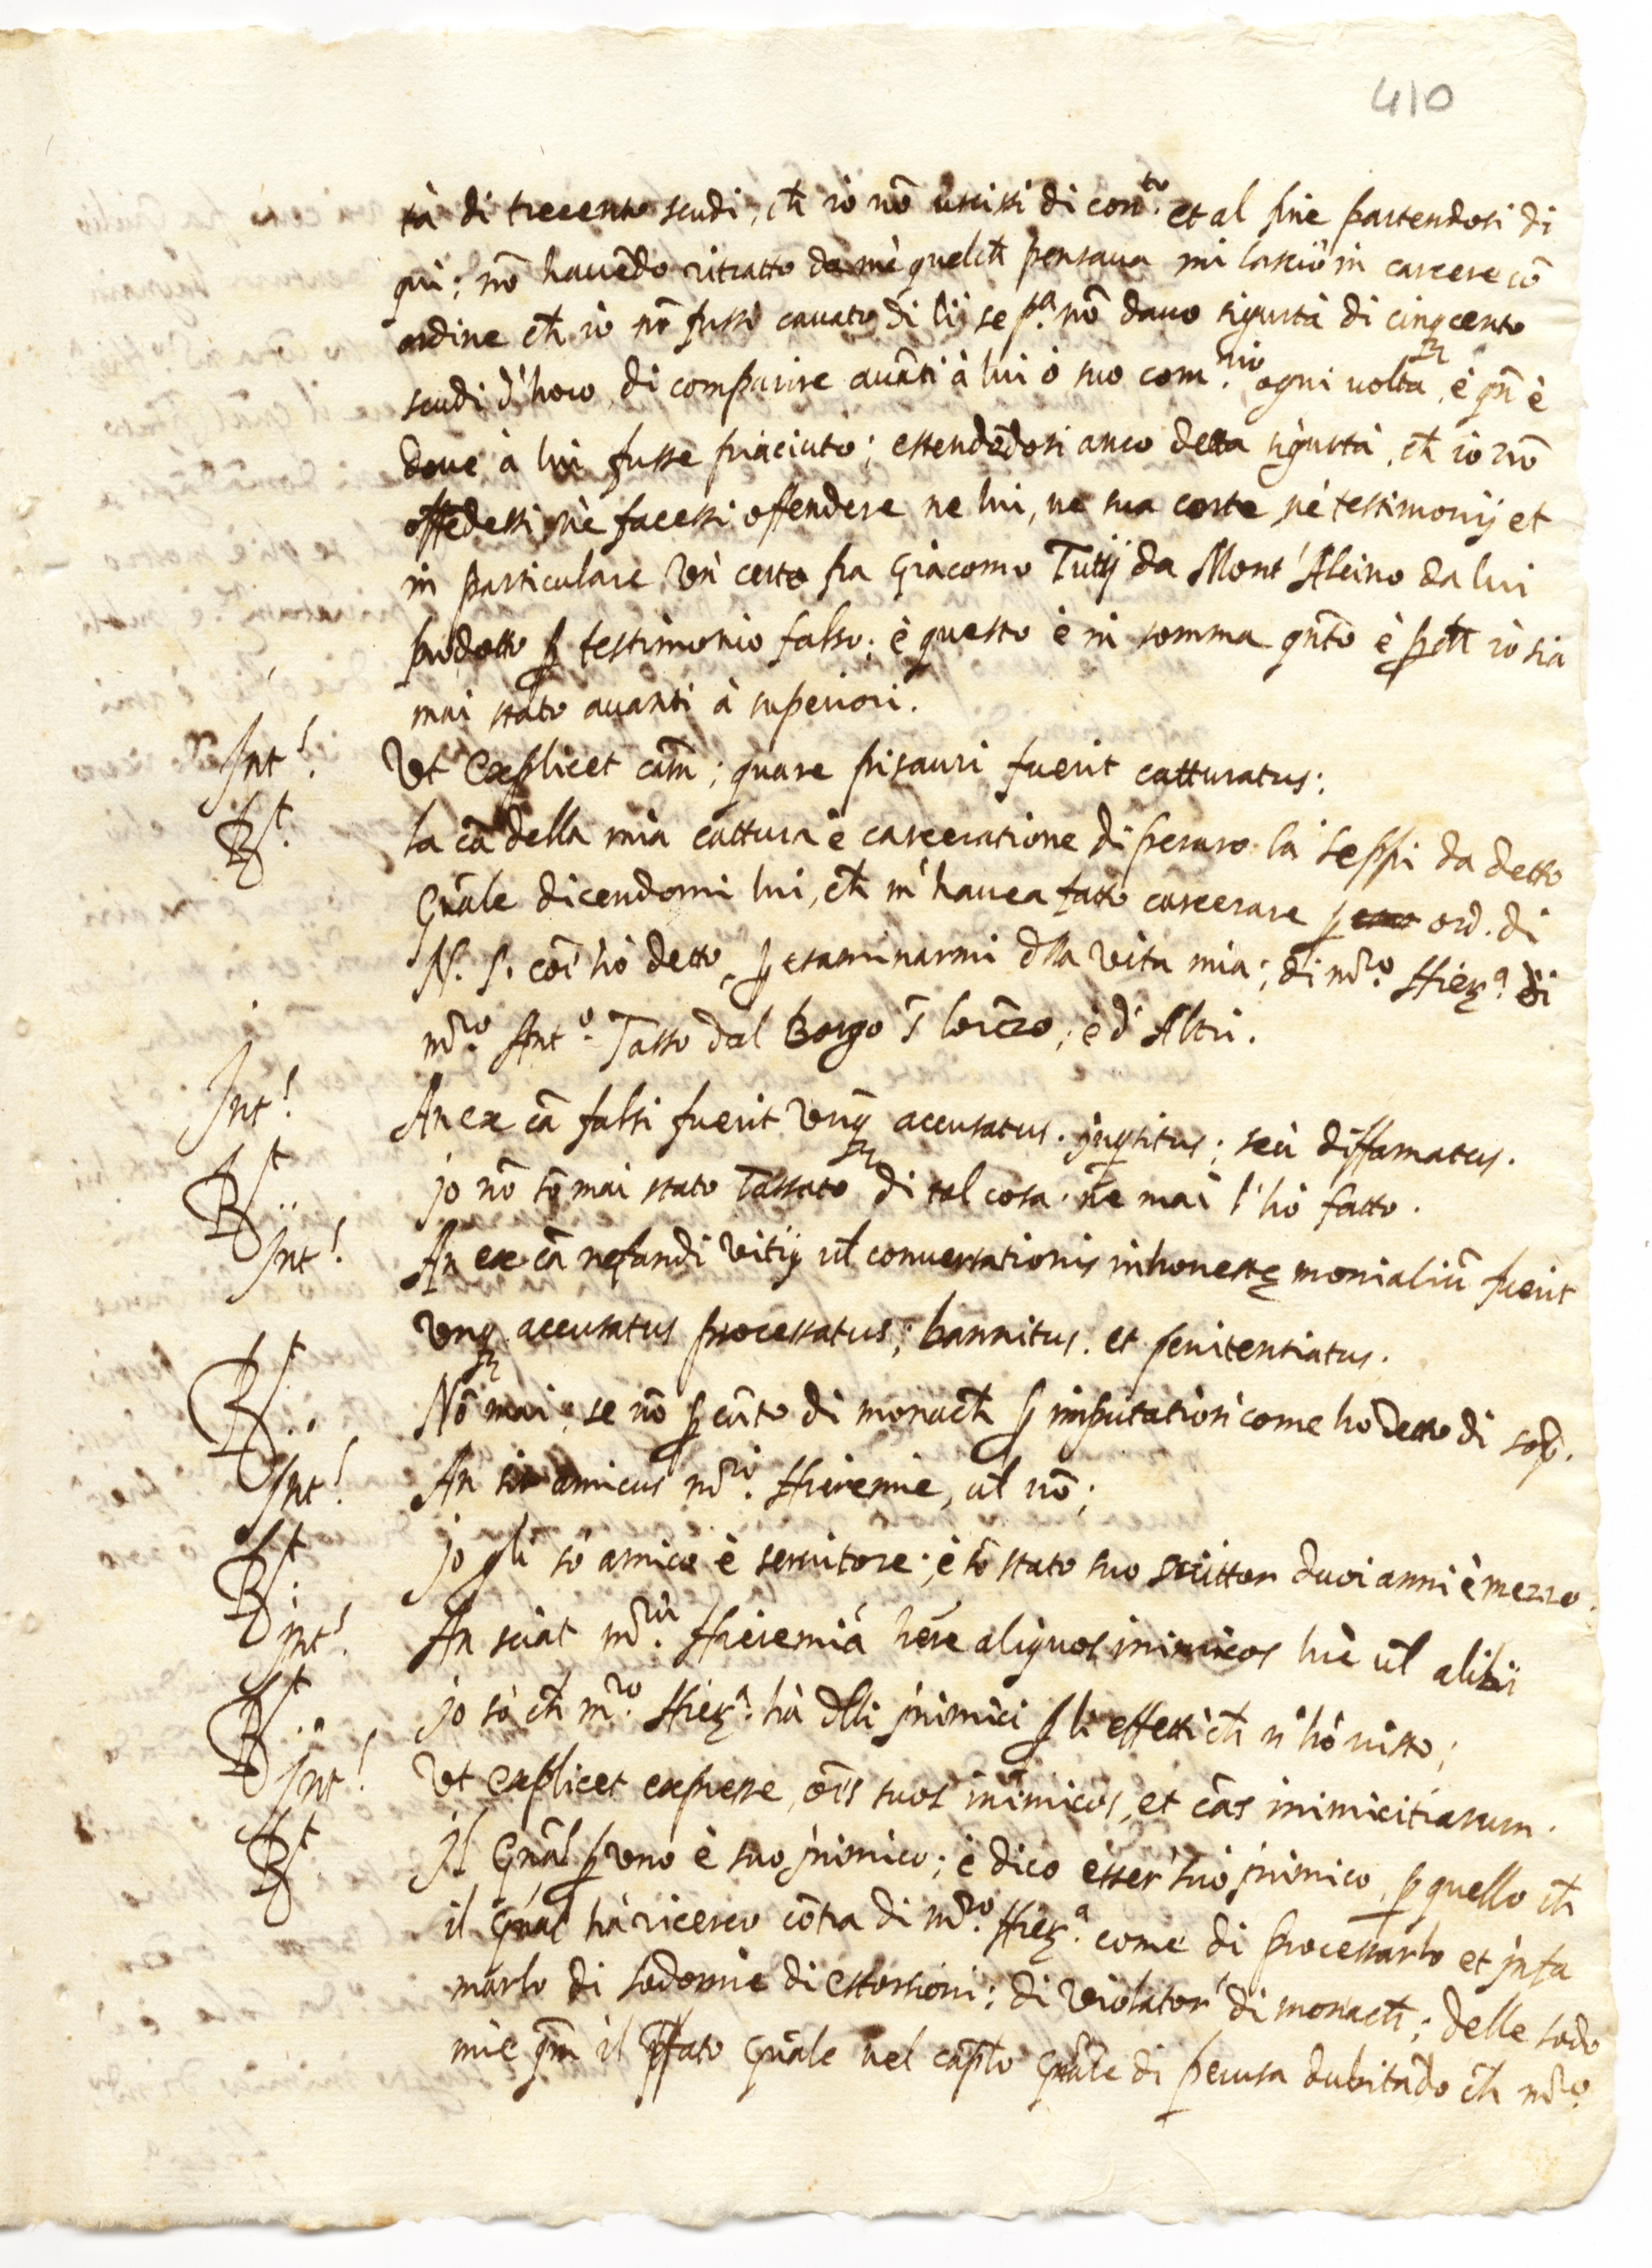 410
tà di trecento scudi, ch̃ iò nõ uscissi di con.to et al fine partendosi di
quì; nõ hauẽdo ritratto da mè quelch̃ pensaua mi lasciò in carcere cõ
ordine ch̃ iò nõ fussi cauato di lì se p.a nõ dauo sigurtà di cinqcento
scudi d'horo di comparire auãti à lui ò suo com.rio ogni uolta, è qñ è
doue à lui fusse piaciuto; estendẽdosi anco detta sigurtà, ch̃ iò nõ
offẽdessi nè facessi offendere ne lui, ne sua corte nè testimonij et
in particulare un certo fra Giacomo Tutij da Mont'Alcino da lui
prodotto ꝑ testimonio falso; è questo è in somma qñto è ꝑch̃ iò sia
mai stato auanti à superiori.
Int.! Vt explicet cãm; quare pisauri fuerit catturatus:
R.t la cã della mia cattura è carceratione di pesaro la seppi da detto
Gñale dicendomi lui, ch̃ m'hauea fatto carcerare ꝑ ord. di
N. S. coĩ hò detto, ꝑ esaminarmi dlla vita mia; di mr̃o. Hier.a di
mr̃o. Ant.o Tasso dal Borgo S̃ lorẽzo; è d'Altri.
Int.! An ex cã falsi fuerit vnq̃ accusatus. inqsitus; seù diffamatus.
R.t jo nõ sõ mai stato Tassato di tal cosa. ñe mai l'hò fatto.
Int.! An ex cã nefandi vitij ul̃ conuersationis inhonestę monialiũ fuerit
vnq̃ accusatus processatus; bannitus. et penitentiatus.
R.t Nõ mai; se nõ ꝑ cũto di monach̃ ꝑ imputationi come ho detto di sop̃.
Int.! An sit amicus mr̃i. Hieremie, ul̃ nõ;
R.t jo gli sõ amico è seruitore; è sõ stato suo scrittor duoi anni è mezzo.
Int.! An sciat mr̃um. Hieremiã hẽre aliquos inimicos hic ul̃ alibi
R.t jo sò ch̃ mr̃o. Hier.a hà dlli jnimici ꝑ li effetti ch̃ n'hò uisto;
Int.! Vt explicet expresse, oẽs suos inimicos, et cãs inimicitiarum.
R.t Jl Gñal ꝑ uno è suo jnimico; è dico esser' suo jnimico ꝑ quello ch̃
il Gñal hà ricerco cõtra di mr̃o. Hier.a come di processarlo et jnfa
marlo di sodomie di estorsioni; di violator' di monach̃; delle sodo
mie qm̃ il p̃fato Gñale nel cap̃lo Gñale di perusa dubitãdo ch̃ mr̃o.